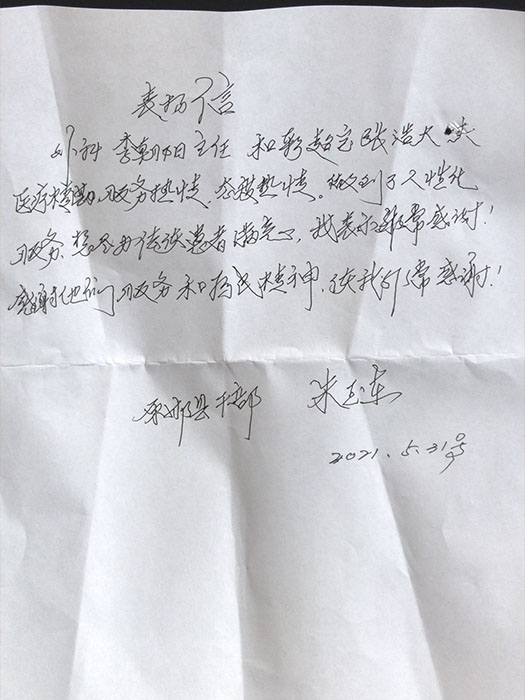 表扬信
外科 李朝阳主任 和郭超宝 张浩大夫
医疗精湛, 服务热情, 态度热情。做到了人性化
服务, 想尽办法使患者满意, 我表示非常感谢!
感谢他们服务和为民精神, 使我非常感谢!
县干部 朱玉东
2021.5.31号